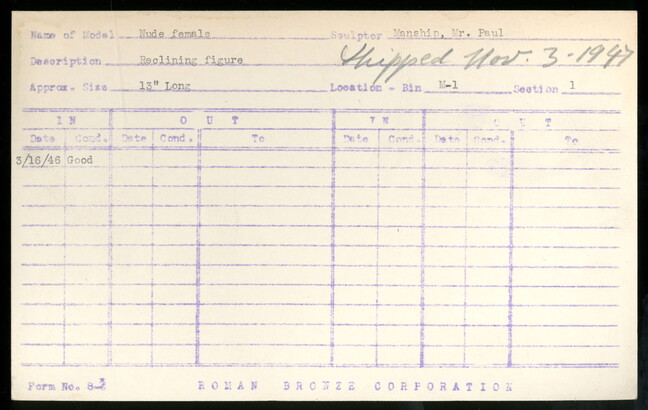 Name of Model Nude female Sculptor Manship, Mr. Paul
Description Reclining figure Shipped Nov. 3-1947
Approx. Size 13" Long Location - Bin M-1 Section 1
IN OUT IN OUT
Date Cond. Date Cond. To Date Cond. Date Cond. To
3/16/46 Good
Form No. 8-3 ROMAN BRONZE CORPORATION